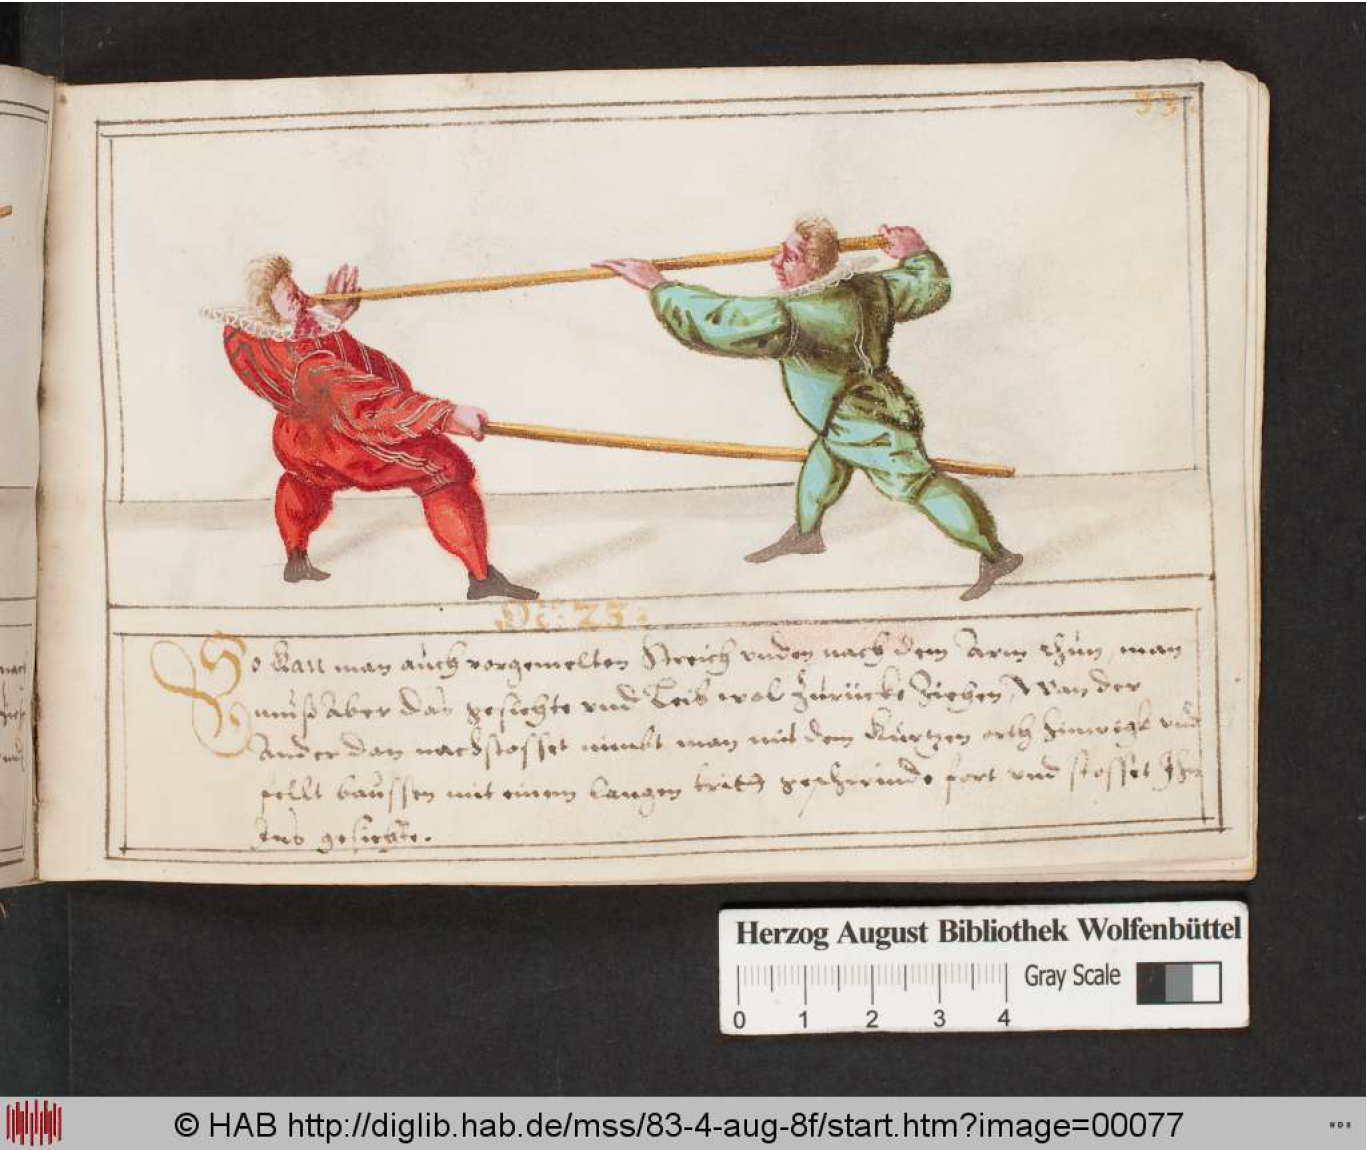 33.
No: 23:
So kan man auch vorgemelten streich unden nach dem Arm thun, man
muß aber das gesichte und Leib wol zurücke ziehen, Wan der
Ander dan nachstosset nimbt man mit dem kurtzen orth hinwegk und
felt baussen mit einem langen tritt geschwinde fort und stosset Ihn
Ins gesichte.
Herzog August Bibliothek Wolfenbüttel
Gray Scale
0 1 2 3 4
© HAB http://diglib.hab.de/mss/83-4-aug-8f/start.htm?image=00077